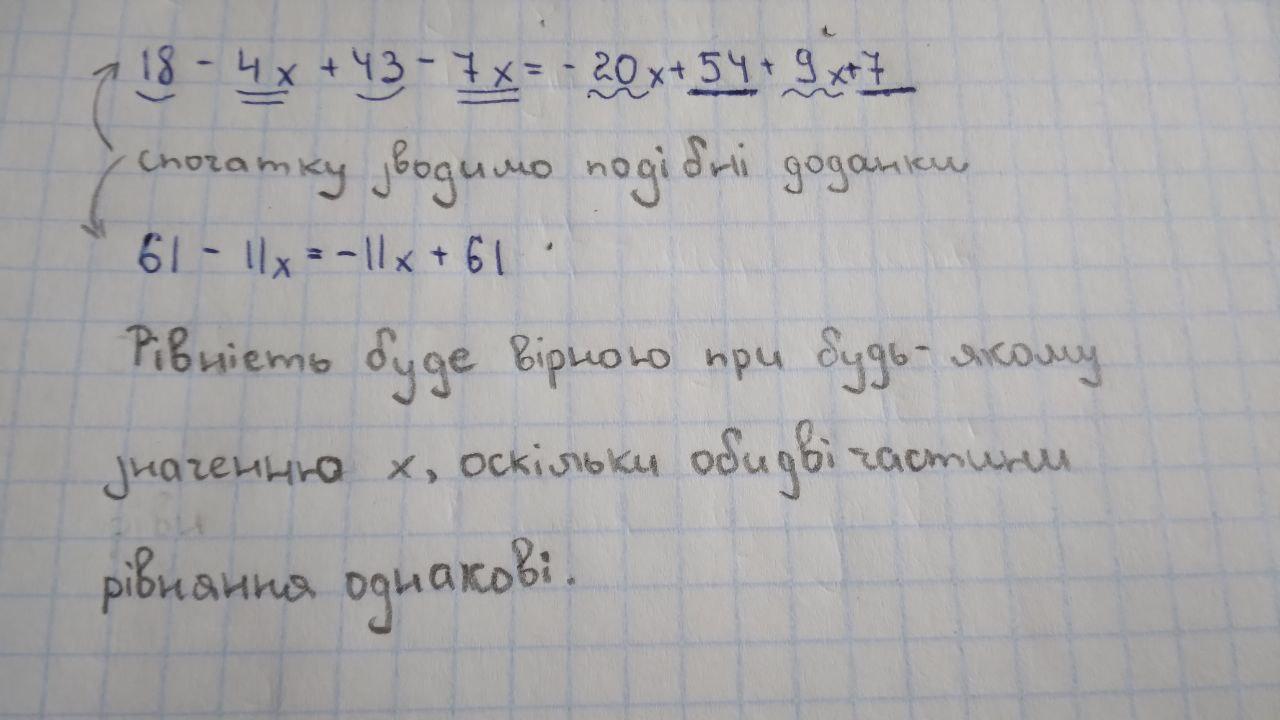 18 - 4x + 43 - 7x = - 20x + 54 + 9x + 7
спочатку зводимо подібні доданки
61 - 11x = - 11x + 61
Рівність буде вірною при будь-якому
значенню x, оскільки обидві частини
рівняння однакові.